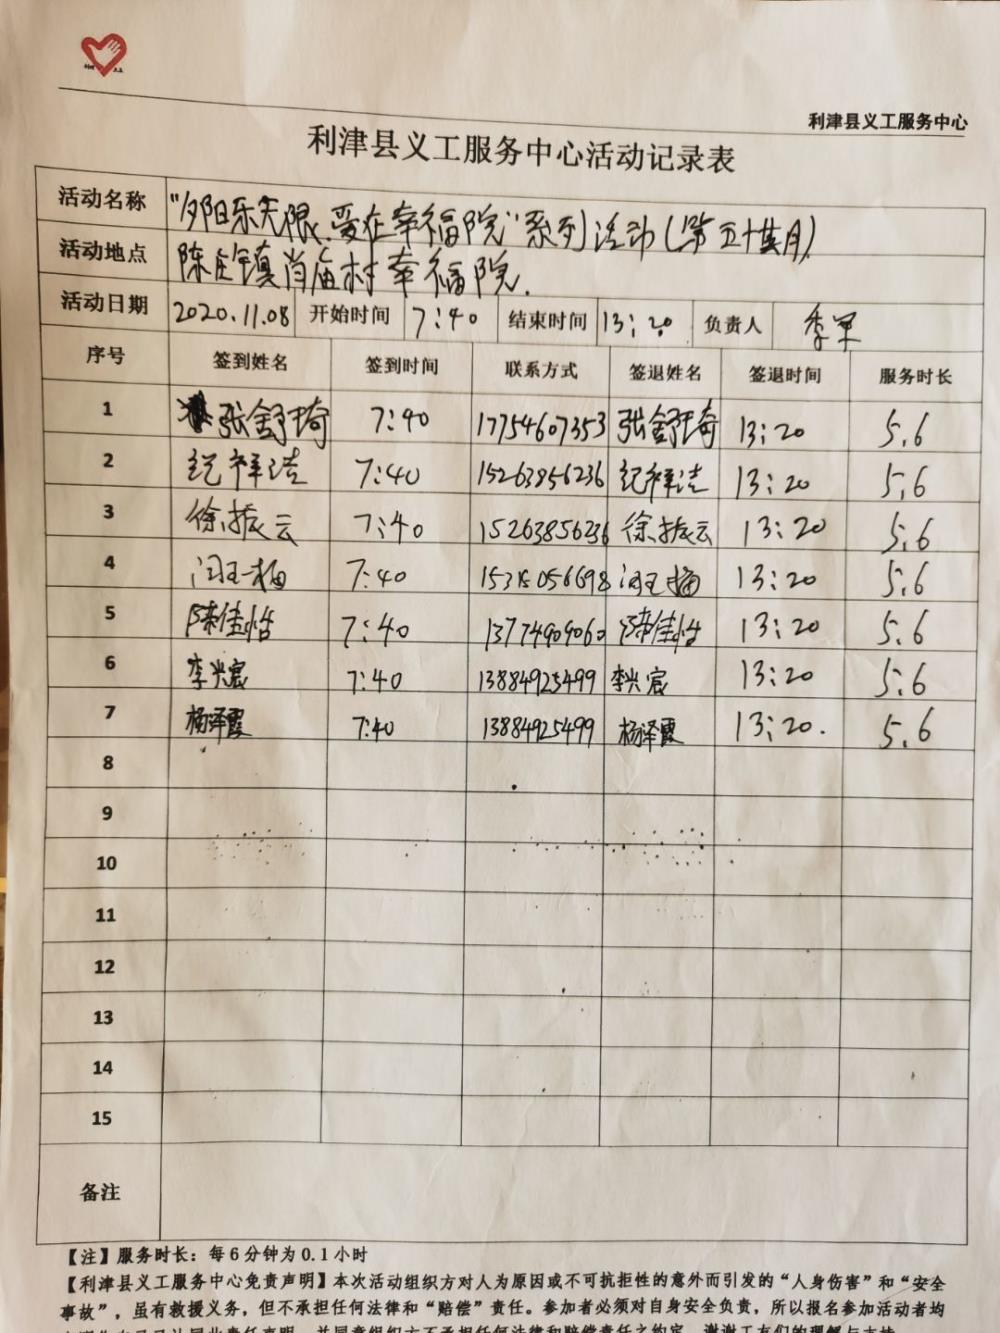 利津县义工服务中心
利津县义工服务中心活动记录表
活动名称 "夕阳乐无限、爱在幸福院"系列活动(第五十其月)
活动地点 陈庄镇肖庙村幸福院.
活动日期 2020.11.08 开始时间 7:40 结束时间 13:20 负责人 季军
序号 签到姓名 签到时间 联系方式 签退姓名 签退时间 服务时长
1 张舒琦 7:40 17754607353 张舒琦 13:20 5.6
2 纪祥洁 7:40 15263856236 纪祥洁 13:20 5.6
3 徐振云 7:40 15263856236 徐振云 13:20 5.6
4 7:40 15315056698 13:20 5.6
5 陈佳怡 7:40 13774909060 陈佳怡 13:20 5.6
6 李兴宸 7:40 13884925499 李兴宸 13:20 5.6
7 杨泽霞 7:40 13884925499 杨泽霞 13:20. 5.6
8
9
10
11
12
13
14
15
备注
【注】服务时长：每6分钟为0.1小时
【利津县义工服务中心免责声明】本次活动组织方对人为原因或不可抗拒性的意外而引发的“人身伤害”和“安全
事故”，虽有救援义务，但不承担任何法律和“赔偿”责任。参加者必须对自身安全负责，所以报名参加活动者均